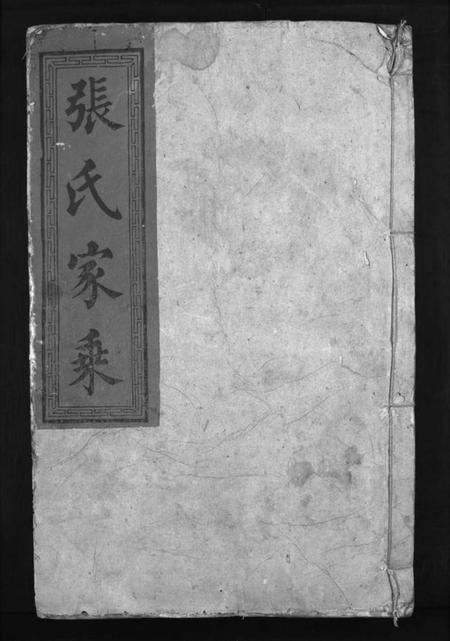 張氏家乘